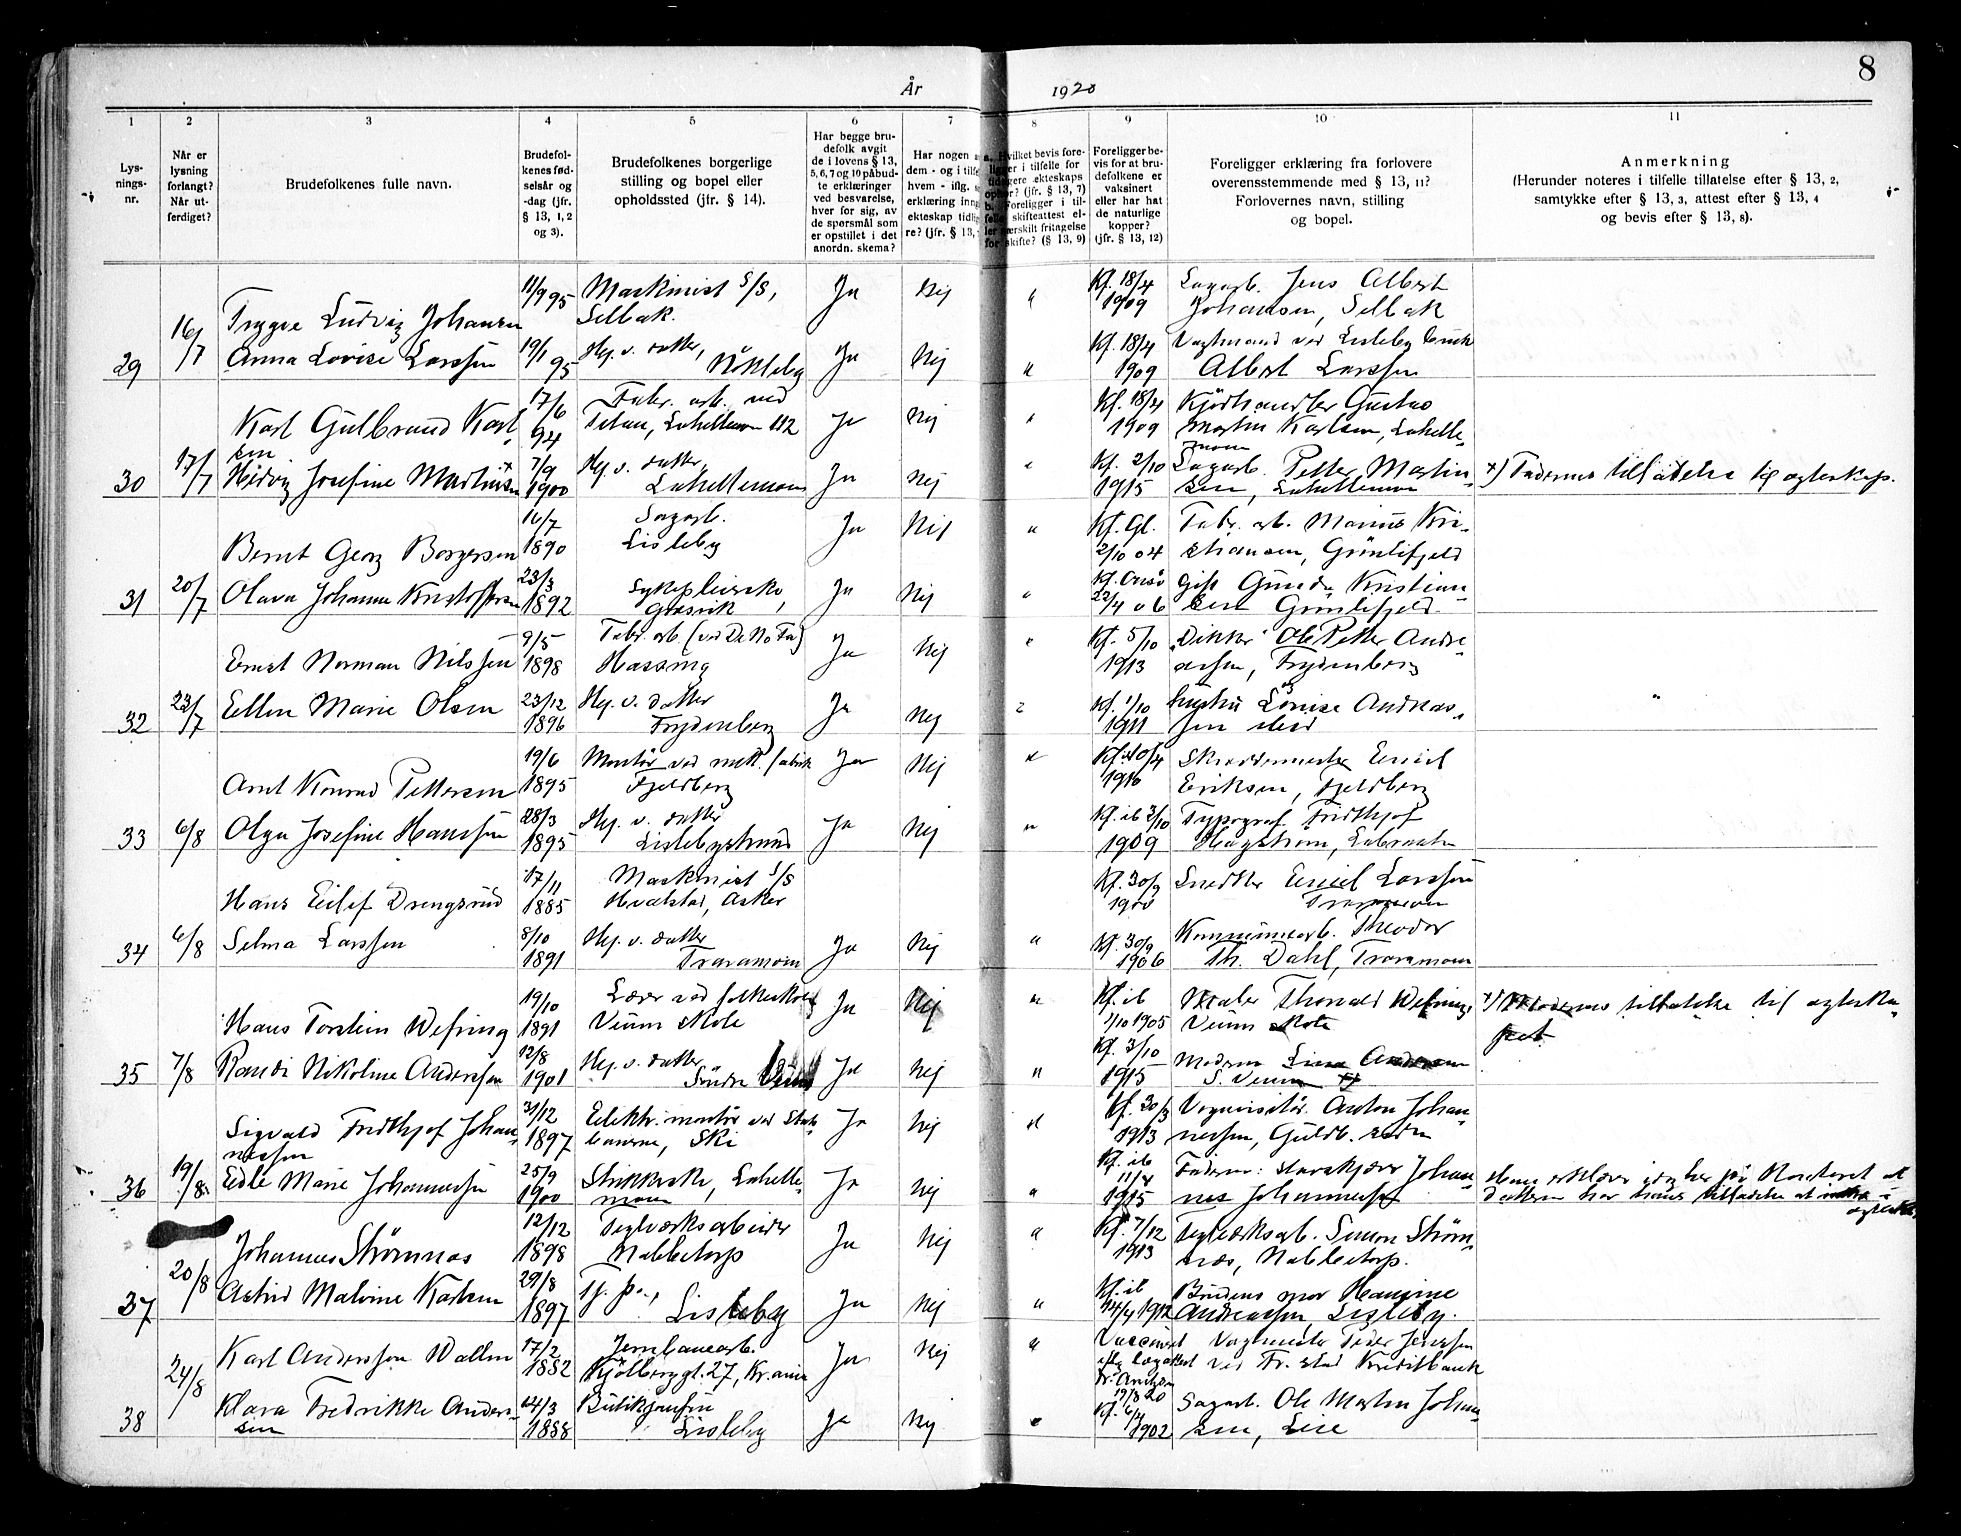 8
År 1920
1 2 3 4 5 6 7 8 9 10 11
Lys-
nings-
nr.
Når er
lysning
forlangt?
Når ut-
ferdiget?
Brudefolkenes fulle navn.
Brudefol-
kenes fød-
selsår og
-dag (jfr.
§ 13, 1, 2
og 3).
Brudefolkenes borgerlige
stilling og bopel eller
opholdssted (jfr. § 14).
Har begge bru-
defolk avgit
de i lovens § 13,
5, 6, 7 og 10 påbud-
te erklæringer
ved besvarelse,
hver for sig, av
de spørsmål som
er opstillet i det
anordn. skema?
Har nogen a
dem - og i tilfe
hvem - iflg.
erklæring inng
ekteskap tidli
re? (jfr. § 13,
a. Hvilket bevis fore-
ligger i tilfelle for
tidligere ekteskaps
ophør? (jfr. § 13, 7)
b. Foreligger i til-
felle skifteattest el-
ler særskilt fritagelse
for skifte? (§ 13, 9)
Foreligger be-
vis for at bru-
defolkene er
vaksinert
eller har hat
de naturlige
kopper?
(jfr. § 13, 12)
Foreligger erklæring fra forlovere
overensstemmende med § 13, 11?
Forlovernes navn, stilling
og bopel.
Anmerkning
(Herunder noteres i tilfelle tillatelse efter § 13, 2,
samtykke efter § 13, 3, attest efter § 13, 4
og bevis efter § 13, 8).
29 16/7 Trygve Ludvig Johansen 11/9 95 Maskinist S/S, Selbak. Ja Nej " Kf. 18/4 1909 Sagarb. Jens Albert Johansen, Selbak
Anna Lovise Larssen 19/1 95 Hj. v. datter, Nökleby Ja Nej " Kf. 18/4 1909 Vagtmand ved Lisleby bruk Albert Larssen
30 17/7 Karl Gulbrand Karlsen 17/6 94 Fabr. arb. ved Titan, Lahellemoen 112 Ja Nej " Kf. 18/4 1909 Kjödhandler Gustav Martin Karlsen, Lahellemoen
Hedvig Josefine Martinsen x 7/9 1900 Hj. v. datter, Lahellemoen Ja Nej " Kf. 2/10 1915 Sagarb. Petter Martinsen, Lahellemoen x) Faderens tillatelse til ægteskap.
31 20/7 Bernt Georg Borgersen 16/7 1890 Sagarb. Lisleby Ja Nej " Kf. Gl. 2/10 04 Fabr. arb. Marius Kristiansen, Grönlifjeld
Olava Johanne Kristoffersen 23/3 1892 Sykepleierske, Gressvik Ja Nej " Kf. Onsö 22/4 06 Gift Gunda Kristiansen Grönlifjeld
32 22/7 Ernst Norman Nilssen 9/5 1898 Fabr. arb. (ved De No Fa) Hassing Ja Nej " Kf. 5/10 1913 Dikker Ole Petter Andreassen, Frydenberg
Ellen Marie Olsen 23/12 1896 Hj. v. datter Frydenberg Ja Nej " Kf. 1/10 1911 hustru Lovise Andreassen sted "
33 6/8 Arnt Konrad Pettersen 19/6 1895 Montör ved mek. fabrik Fjeldberg Ja Nej " Kf. 10/4 1910 Skreddermester Emil Eriksen, Fjeldberg
Olga Josefine Hanssen 28/3 1895 Hj. v. datter Lislebystrand Ja Nej " Kf. ib 3/10 1909 Typograf Fridthjof Hagström, Labraaten
34 6/8 Hans Eilef Drengsrud 17/11 1885 Maskinist S/S Hvalstad, Asker Kf. 30/9 1900 Snedker Emil Larssen Traramoen
Selma Larssen 8/10 1891 Hj. v. datter Traramoen Ja Nej " Kf. 30/9 1906 Kommunearb. Theodor Th. Dahl, Traramoen
35 7/8 Hans Torstein Wefring 19/10 1891 Lærer ved folkeskolen Veum skole Ja Nej " Kf. ib 1/10 1905 Maler Thorvald Wefring, Veum skole x) Moderens tillatelse til ægteskapet
Randi Nikoline Anderssen 12/8 1901 Hj. v. datter, Söndre Veum Ja Nej " Kf. 3/10 1915 Moderen Lina Andersen S. Veum x)
36 19/8 Sigvald Fridthjof Johannessen 31/12 1897 Elektr. montör ved Statsbanerne, Ski Ja Nej " Kf. 30/3 1913 Vognvisitör Anton Johannessen, Guldb. eden
Edle Marie Johannessen 25/9 1900 Strikkerske, Lahellemoen Ja Nej " Kf. ib 11/4 1915 Faderen: stavskjærer Johannes Johannessen Han erklærer idag her på kontoret at datteren har hans tilladelse at indtræ i ægtesk.
37 20/8 Johannes Strömnæs 12/12 1898 Teglverksarbeider Nabbetorp Ja Nej " Kf. 7/12 1913 Teglverksarb. Simon Strömnæs, Nabbetorp.
Astrid Malvine Karlsen 29/8 1897 Tj. p., Lisleby Ja Nej " Kf. ib 14/4 1912 Brudens mor Hansine Andreassen, Lisleby.
38 24/8 Karl Anderssen Wallin 17/2 1882 Jernbanearb. Kjölberggt. 27, Kr.ania Ja Nej " Vaccinert iflg lægeattest Dr. 19/8 20 Vagtmester Peder Jenssen ved Fr.stad Kreditbank
Klara Fredrikke Andersen 24/3 1888 Butikjomfru Lisleby Ja Nej " Kf. 6/4 1902 Sagarb. Ole Martin Johansen, Lie